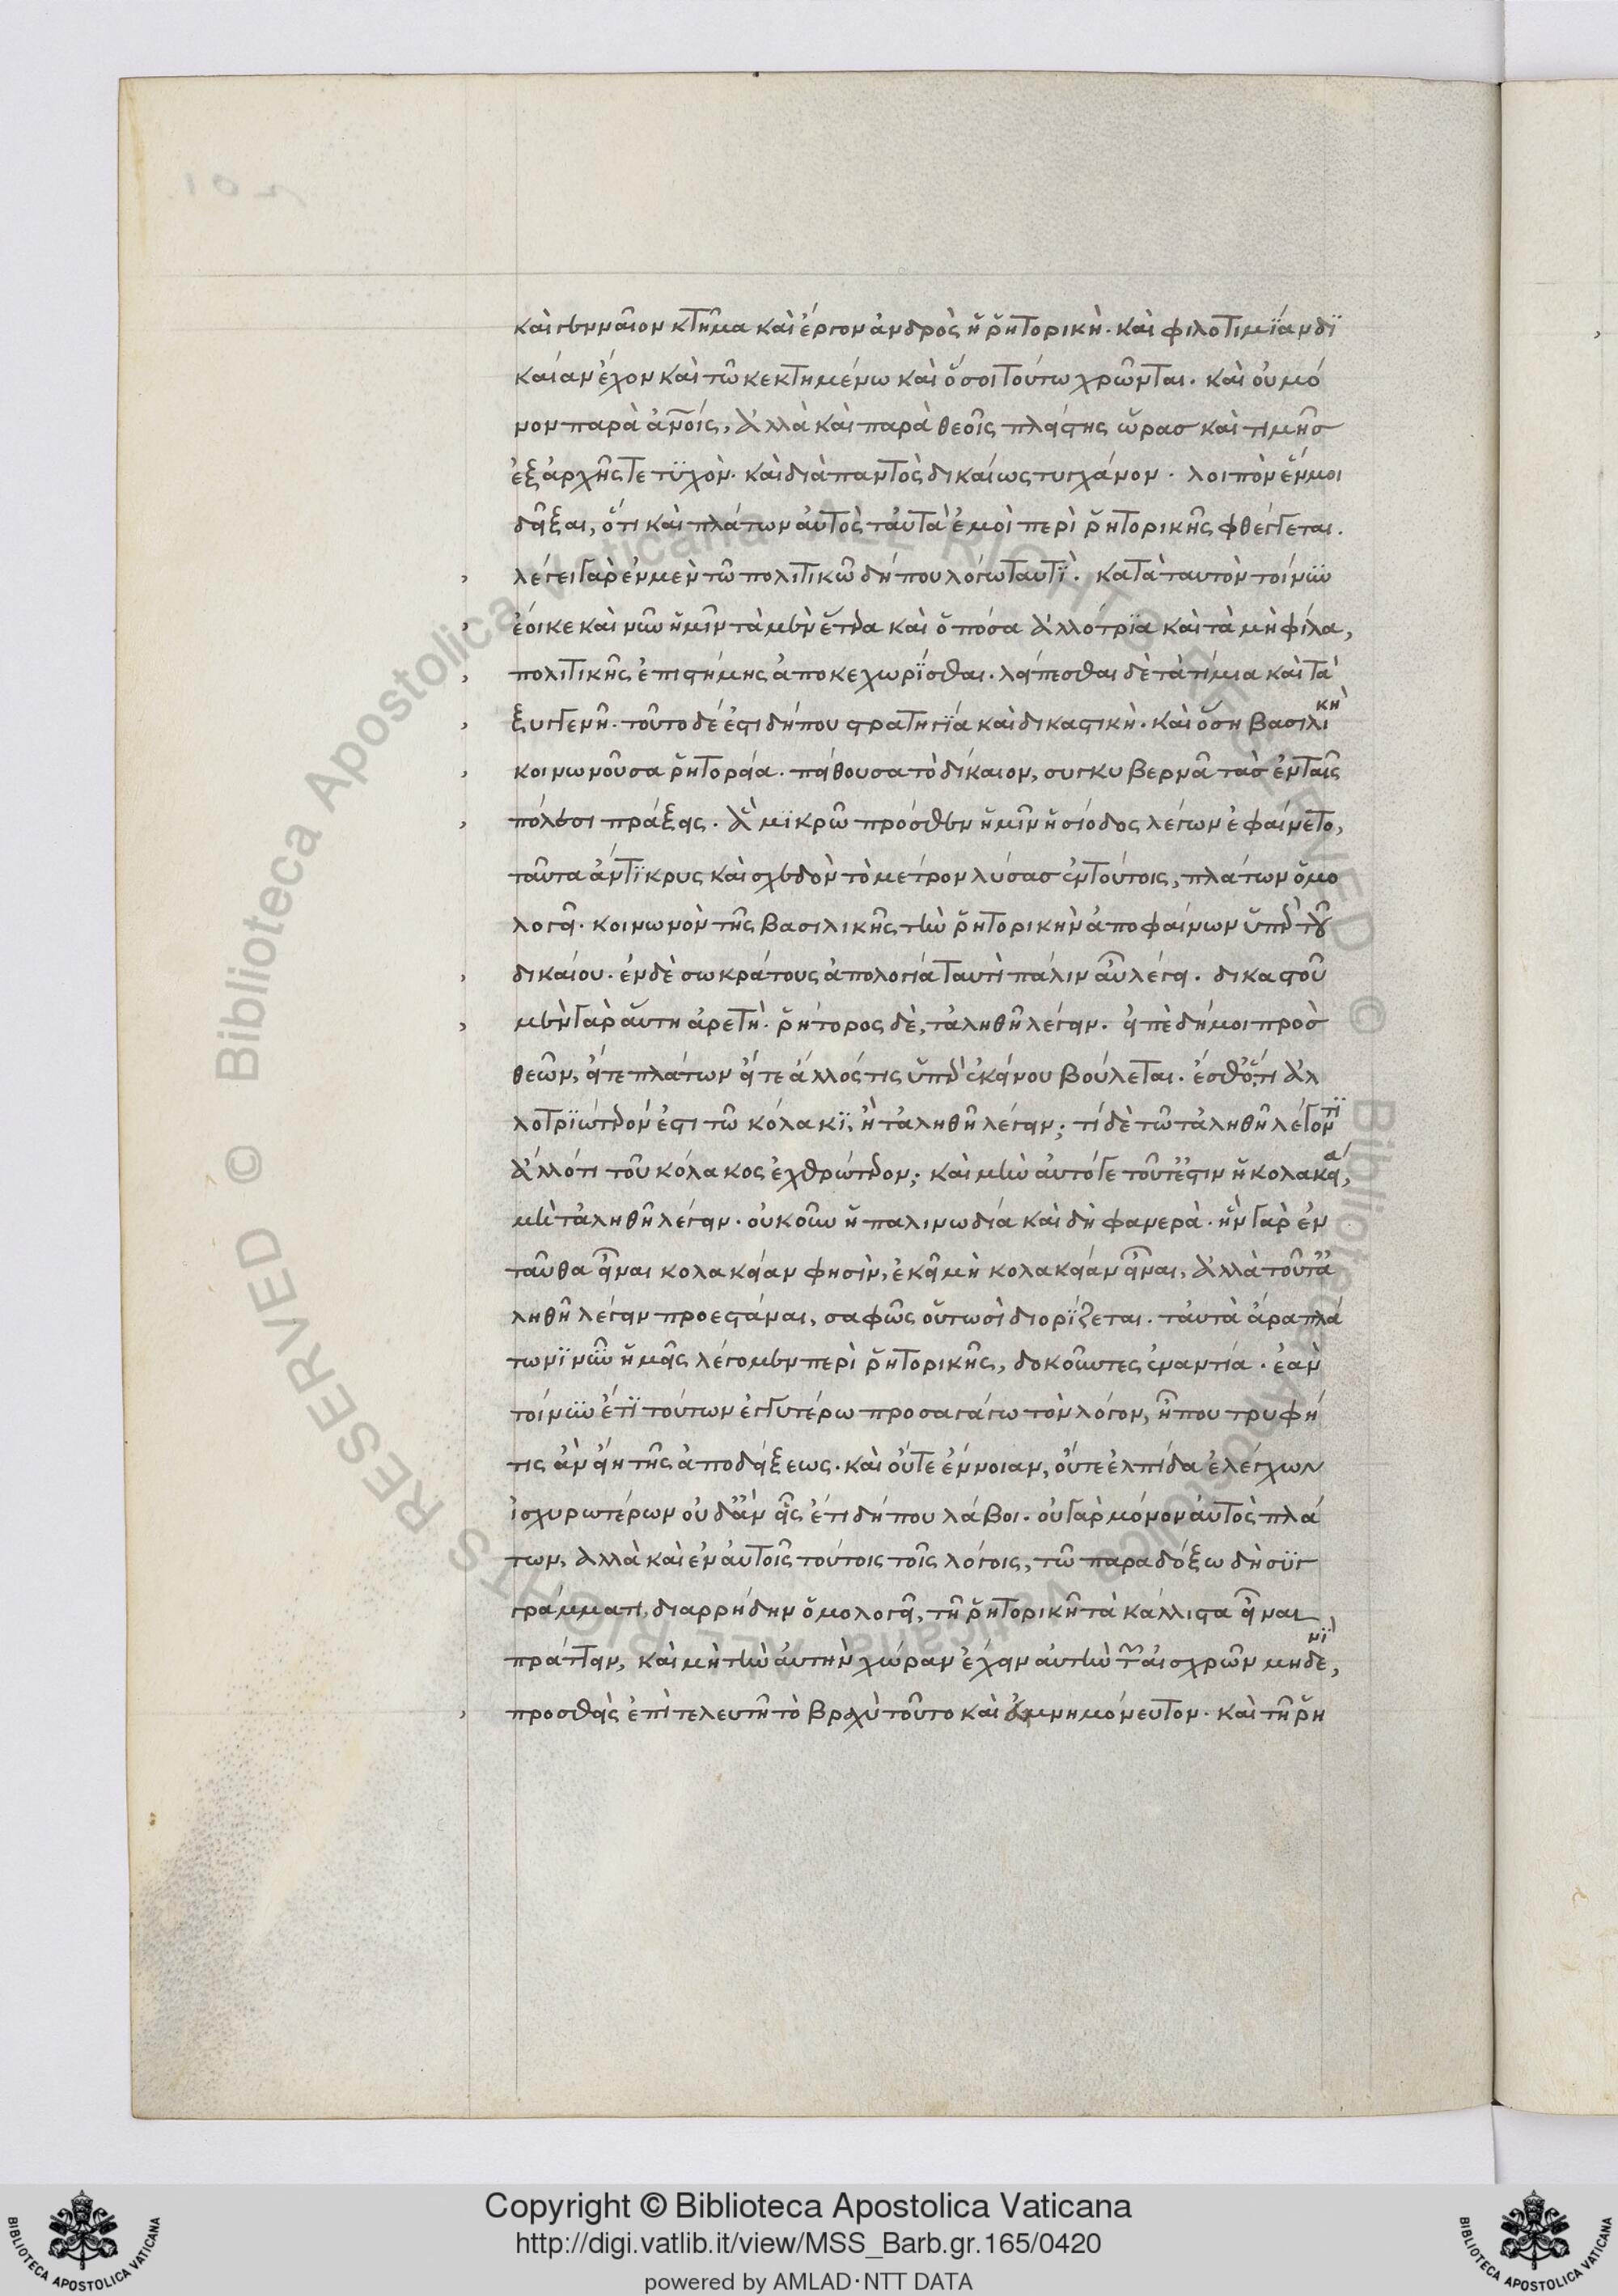 καὶ γενναῖον κτῆμα καὶ ἔργον ἀνδρὸς ἡ ῥητορικὴ. καὶ φιλοτιμΐαν δϊ
καίαν ἔχον καὶ τῶ κεκτημένω καὶ ὅσοι τούτω χρῶνται. καὶ οὐ μό
νον παρὰ ἀν̅οις, ἀλλὰ καὶ παρὰ θεοῖς πλείστης ὥρας καὶ τιμῆς
ἐξ ἀρχῆς τετϋχὸν. καὶ διὰ παντὸς δικαίως τυγχάνον. λοιπὸν ἕν μοι
δεῖξαι, ὅτι καὶ πλάτων αὐτὸς ταὐτὰ ἐμοὶ περὶ ῥητορικῆς φθέγγεται.
λέγει γὰρ ἐν μὲν τῶ πολιτικῶ δήπου λόγω ταυτΐ. κατὰ ταυτὸν τοίνϋν
ἔοικε καὶ νῦν ἡμῖν τὰ μὲν ἕτερα καὶ ὁπόσα ἀλλότρϊα καὶ τὰ μὴ φίλα,
πολιτικῆς ἐπιστήμης ἀποκεχωρΐσθαι. λείπεσθαι δὲ τὰ τίμια καὶ τὰ
ξυγγενῆ. τοῦτο δέ ἐστι δήπου στρατηγϊά καὶ δικαστικὴ. καὶ ὅση βασιλικὴ
κοινωνοῦσα ῥητορεία. πείθουσα τὸ δίκαιον, συγκυβερνᾶ τὰς ἐν ταῖς
πόλεσι πράξεις. ἃ μϊκρῶ πρόσθεν ἡμῖν ἡσίοδος λέγων ἐφαίνετο,
ταῦτα ἄντϊκρυς καὶ σχεδὸν τὸ μέτρον λύσας ἐν τούτοις, πλάτων ὁμο
λογεῖ. κοινωνὸν τῆς βασιλικῆς τὴν ῥητορικὴν ἀποφαίνων ὑπὲρ τοῦ
δικαίου. ἐν δὲ σωκράτους ἀπολογία ταυτὶ πάλιν αὖ λέγει. δικαστοῦ
μὲν γὰρ αὕτη ἀρετὴ. ῥήτορος δὲ, τἀληθῆ λέγειν. εἰπὲ δή μοι πρὸς
θεῶν, εἴτε πλάτων εἴτε ἄλλός τις ὑπὲρ ἐκείνου βούλεται. ἔσθ' ὅ, τι ἀλ
λοτρϊώτερόν ἐστι τῶ κόλακϊ, ἢ τἀληθῆ λέγειν; τί δὲ τῶ τἀληθῆ λέγοντϊ
ἀλλότι τοῦ κόλακος ἐχθρώτερον; καὶ μὴν αὐτό γε τοῦτ' ἔστιν ἡ κολακεία,
μὴ τἀληθῆ λέγειν. οὐκοῦν ἡ παλινωδία καὶ δὴ φανερὰ. ἣν γὰρ ἐν
ταῦθα εἶναι κολακείαν φησὶν, ἐκεῖ μὴ κολακείαν εἶναι, ἀλλὰ τοῦ τἀ
ληθῆ λέγειν προεστάναι, σαφῶς οὑτωσὶ διορΐζεται. ταὐτὰ ἄρα πλά
τωνϊ νῦν ἡμεῖς λέγομεν περὶ ῥητορικῆς, δοκοῦντες ἐναντία. ἐὰν
τοίνϋν ἔτϊ τούτων ἐγγυτέρω προσαγάγω τὸν λόγον, ἦπου τρυφή
τις ἂν εἴη τῆς ἀποδείξεως. καὶ οὔτε ἔννοιαν, οὔτε ἐλπίδα ἐλέγχων
ἰσχυρωτέρων οὐδ' ἂν εἷς ἔτι δήπου λάβοι. οὐ γὰρ μόνον αὐτὸς πλά
των, ἀλλὰ καὶ ἐν αὐτοῖς τούτοις τοῖς λόγοις, τῶ παραδόξω δὴ σϋγ
γράμματι, διαρρήδην ὁμολογεῖ, τῆ ῥητορικῆ τὰ κάλλιστα εἶναι
πράττειν, καὶ μὴ τὴν αὐτὴν χώραν ἔχειν αὐτὴν τῶν αἰσχρῶν μηδενΐ,
προσθεὶς ἐπὶ τελευτῆ τὸ βραχὺ τοῦτο καὶ ἀμνημόνευτον. καὶ τῆ ῥη
Copyright © Biblioteca Apostolica Vaticana
http://digi.vatlib.it/view/MSS_Barb.gr.165/0420
powered by AMLAD·NTT DATA